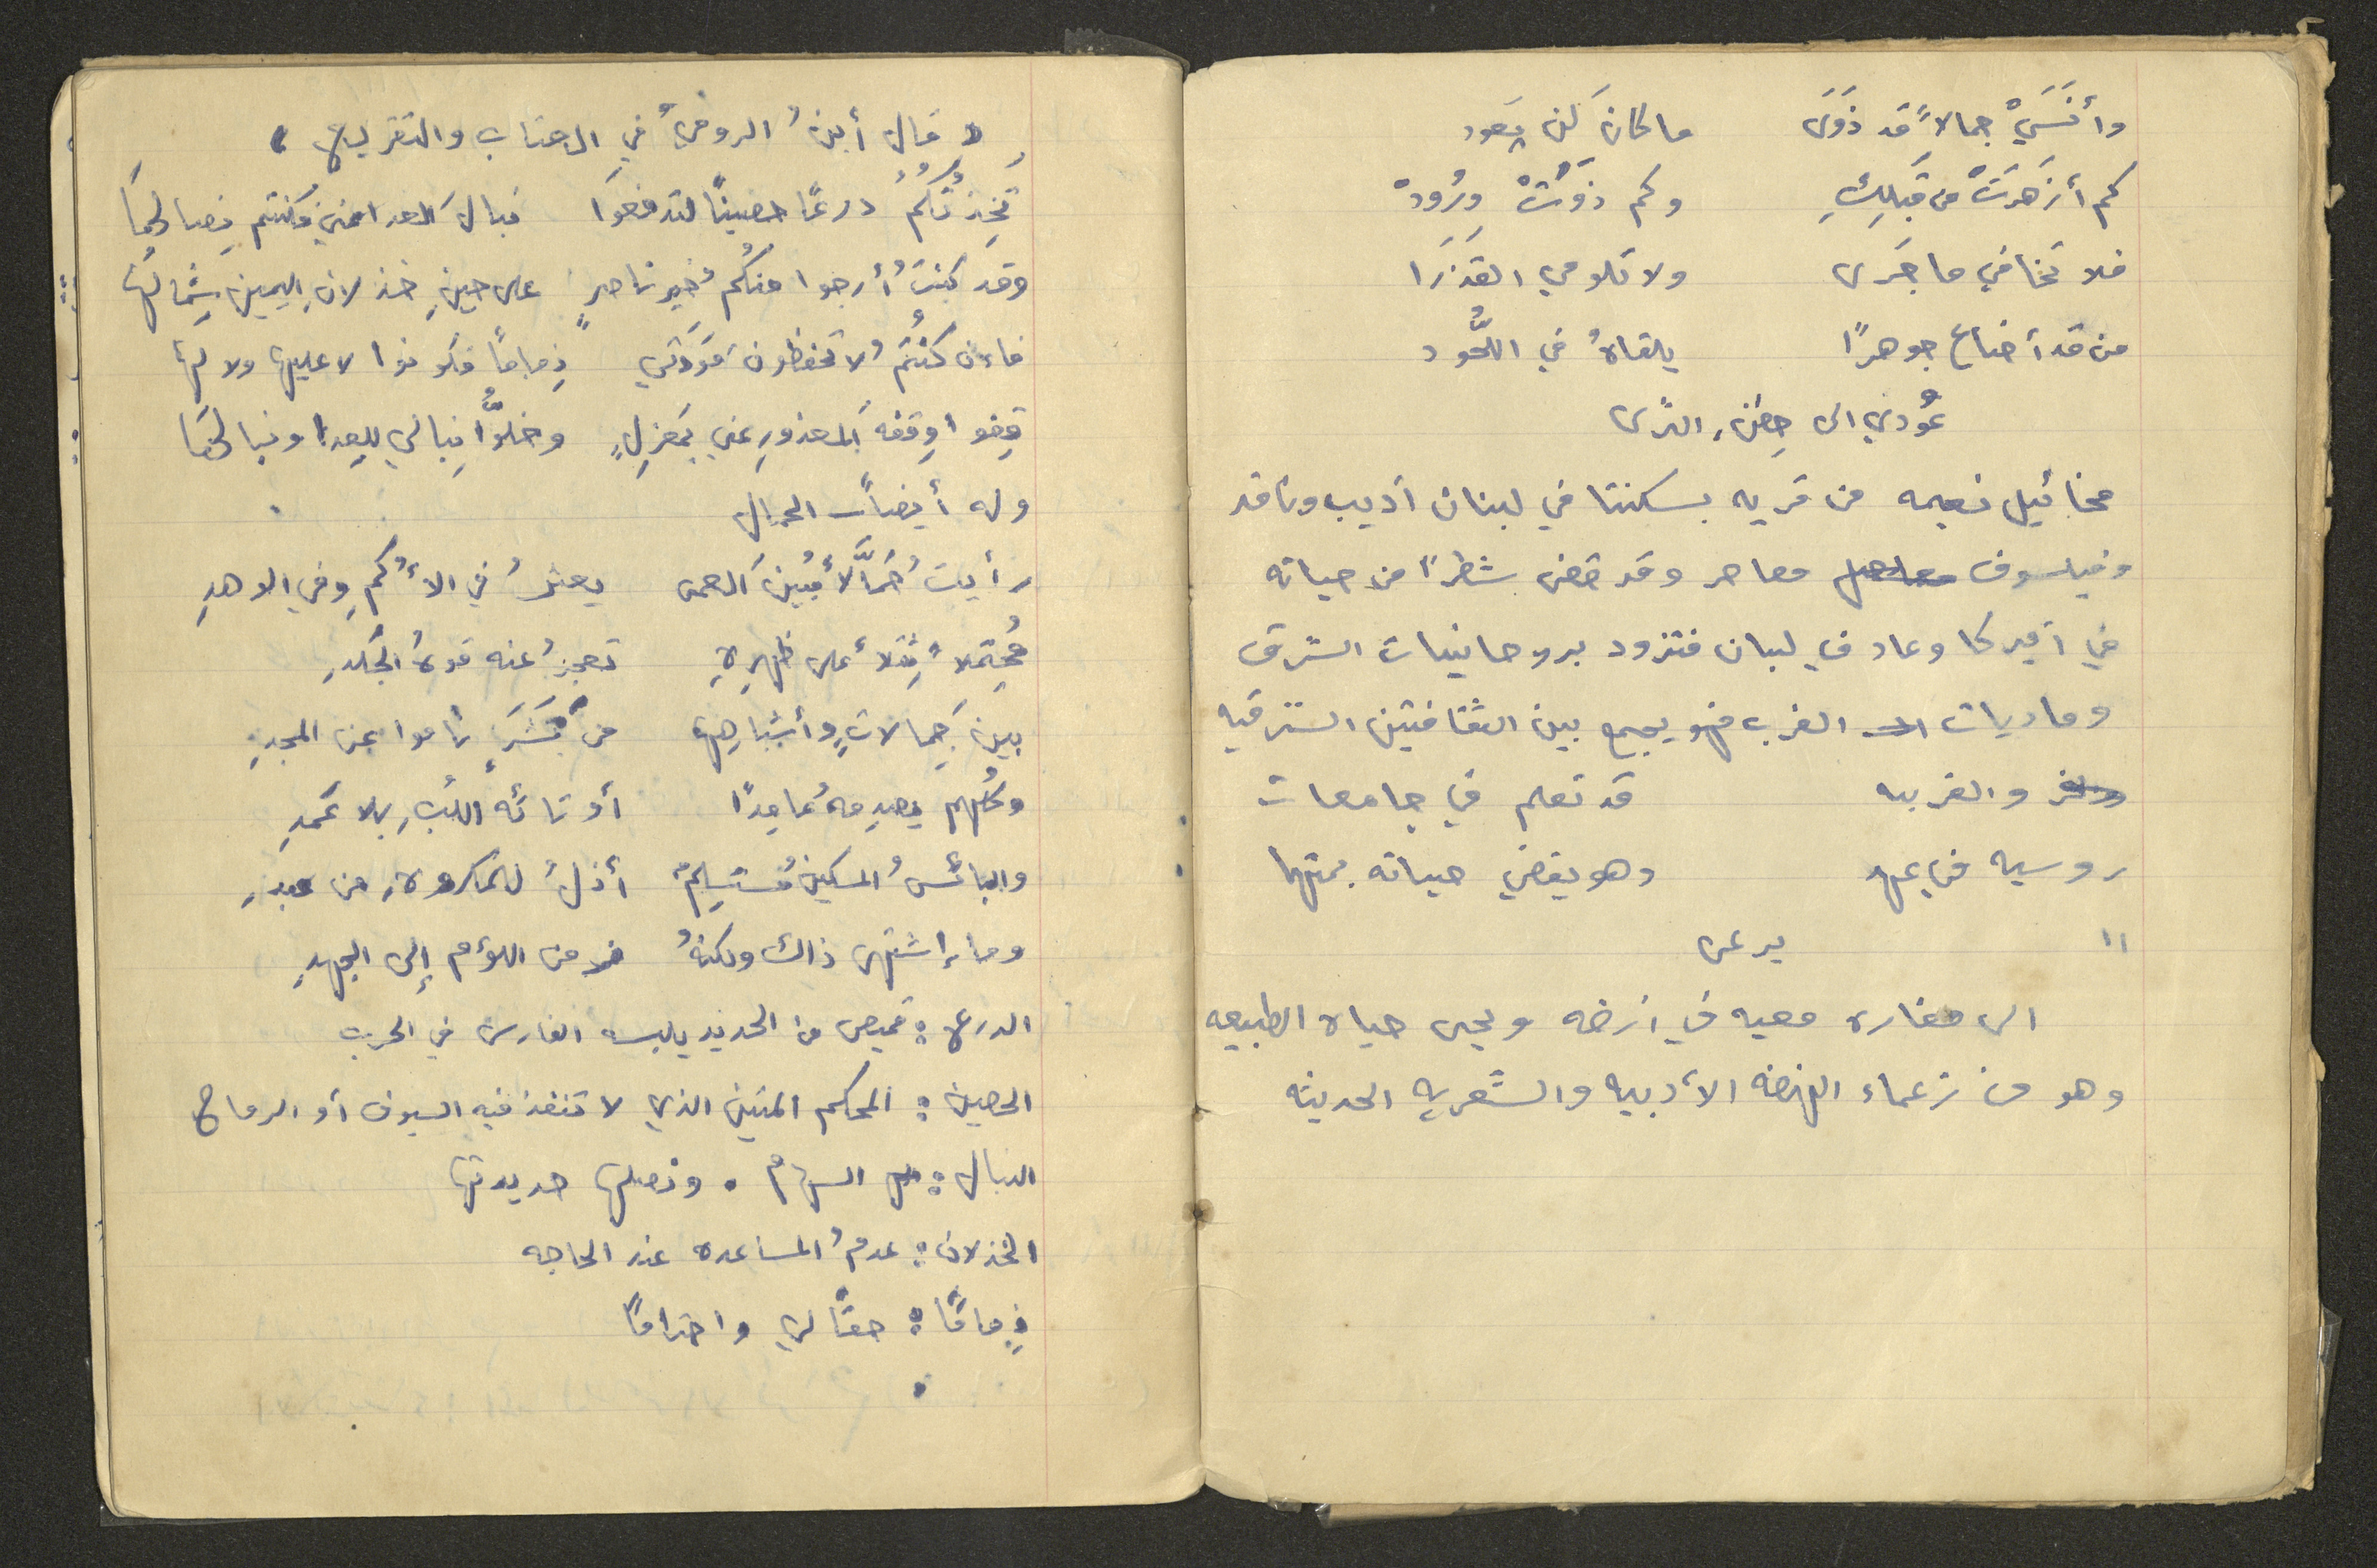 وأنسَيْ جمالاً قد ذَوَى ما كانَ لن يَعود
كم أزهَرَتْ من قَبلِكِ وكم ذوَتْ وُرُودْ
فلا تخافي ما جَرَى ولا تلومي القَدَرَا
من قد أضاع جوهرًا يلقاهُ في اللُّحود
عُودي الى حِضنِ الثرى
مخائيل نعيمه من قريه بسكنتا في لبنان أديب وناقد
وفيلسوف معاصر وقد قضى شطرًا من حياته
في اميركا وعاد في لبنان فتزود بروحانيات الشرق
وماديات الغرب فهو يجمع بين الثقافتين الشرقيه
والغربيه قد تعلم في جامعات
روسيه في عهد وهو يقضي حياته بمتها
11 يرعى
الى مغاره معيه في ارضه ويحيى حياة الطبيعه
وهو من زعماء النهضه الأدبيه والشعريه الحديثه
« قال أبنُ الرومي في العتاب والتقريع »
تَخِذتُكُمُ درعًا حصينًا لتدفعوا نبالَ العدا عني فكنتم نِصالَها
وقد كنتُ أرجوا منكُمُ خير ناصرٍ على حينِ خذلانِ اليمينِ شِمالَها
فاءن كُنتُمُ لا تحفظون مَوَدَتي ذِماماً فكونوا لا عليها ولا لها
قِفوا وِقفه المعذورِ عني بمَعزِلٍ وخلوُّا نِبالي للعِدا ونبالَها
وله أيضاً الحمال
رأيت حَمَّالاً مُبينَ العمى يعثرُ في الأكمِ وفي الوهدِ
مُحتَملاً ثِقلاً على ظهرِهِ تعجزُ عنه قوةُ الجَلَدِ
بين جَمالاتٍ وأشباهِها من بَشَرٍ ناموا عن المجدِ
وكُلهم يصدِمهُ عامِدًا أو تائه اللُبِ بلا عَمدِ
والبائسُ المسكينُ مُستَسلِمٌ أذلُ للمكروهِ من عبدِ
وما إشتهى ذاك ولكنهُ فر من اللؤم إلى الجهدِ
الدرع: قميص من الحديد يلبسه الفارس في الحرب
الحصين: المحكم المتين الذي لا تنفذ فيه السيوف أو الرماح
النبال: السهام . ونصلها حديدتها
الخذلان: عدمُ المساعده عند الحاجه
ذِمامًا: حقًا لي واحترامًا